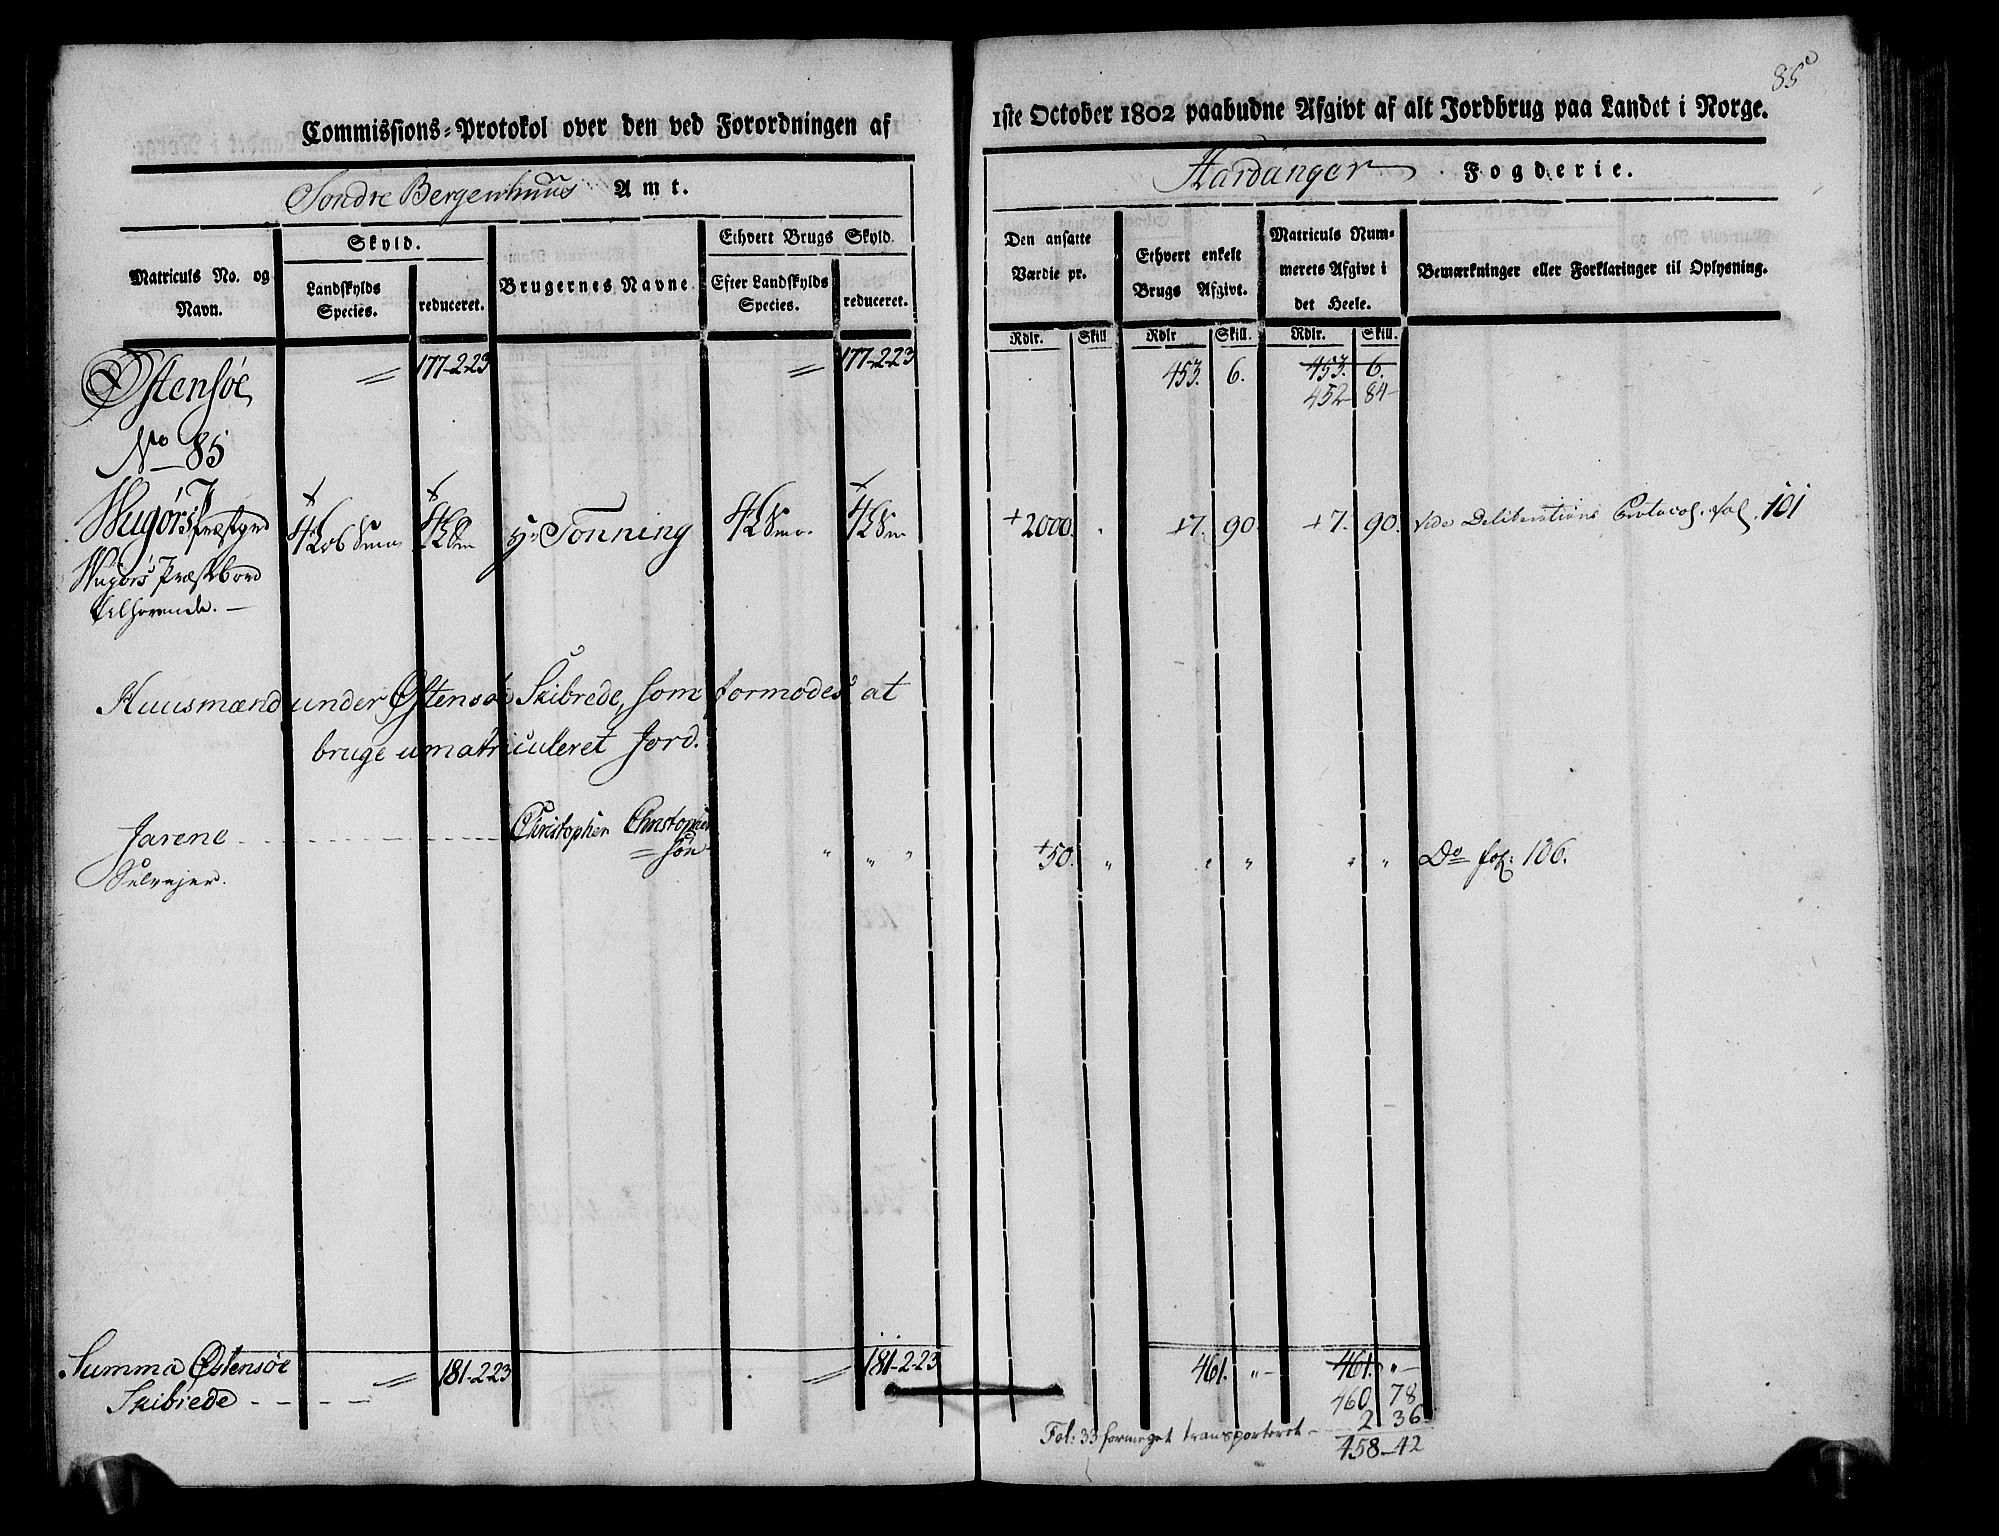 85
Commissions-Protokol over den ved Forordningen af
1ste October 1802 paabudne Afgivt af alt Jordbrug paa Landet i Norge.
Søndre Bergenhuus Amt.
Hardanger Fogderie.
Matriculs No. og Navn.
Skyld.
Landskylds Species.
reduceret.
Brugernes Navne
Ethvert Brugs Skyld.
Efter Landskylds Species.
reduceret.
Den ansatte Værdie pr.
Ethvert enkelt Brugs Afgivt.
Matriculs Nummerets Afgivt i det Heele.
Bemærkninger eller Forklaringer til Oplysning.
Rdlr. Skill. Rdlr Skill. Rdlr. Skill.
Østensøe 177-2-23 177-2-23 453. 6. 453. 6.
452 84
No 85
Hr Tonning 2000. 7. 90. 7. 90. vide Deliberations Protocol. fol. 101
Præstebord
Huusmænd under Østensøe Skibrede, som formodes at
bruge umatriculeret Jord.
Jarene Christopher Christopher
søn 50. Do fol: 106.
Selvejer.
Summa Østensøe
Skibrede 181-2-23 181-2-23 461. 461.
460 78
2 36
Fol: 33 formeget transporteret 458-42